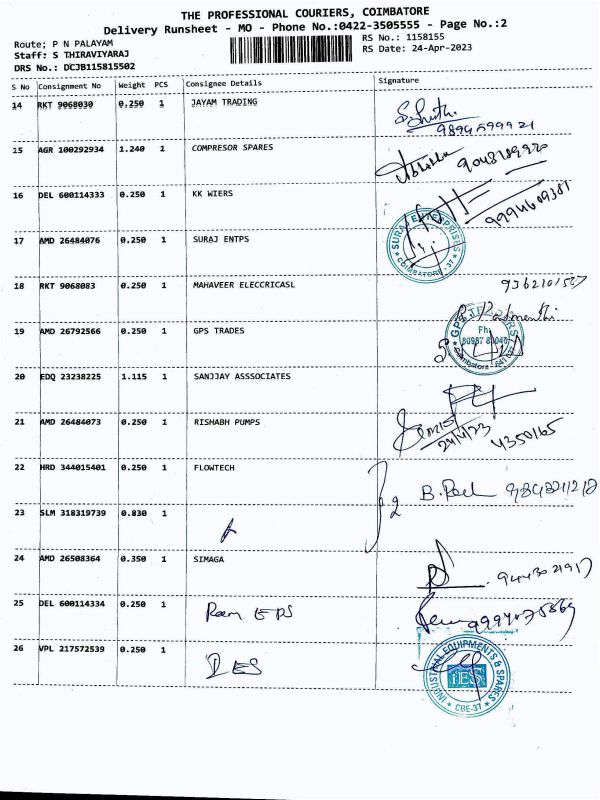 THE PROFESSIONAL COURIERS, COIMBATORE
Delivery Runsheet - MO - Phone No.:0422-3505555 - Page No.:2
Route; P N PALAYAM
Staff: S THIRAVIYARAJ
DRS No.: DCJB115815502
RS No.: 1158155
RS Date: 24-Apr-2023
S No Consignment No Weight PCS Consignee Details Signature
14 RKT 9068030 0.250 1 JAYAM TRADING
15 AGR 100292934 1.240 1 COMPRESOR SPARES
16 DEL 600114333 0.250 1 KK WIERS
9994609381
17 AMD 26484076 0.250 1 SURAJ ENTPS
SURAJ ENTERPRISES
COIMBATORE - 37
18 RKT 9068083 0.250 1 MAHAVEER ELECCRICASL
19 AMD 26792566 0.250 1 GPS TRADES
Ph:
20 EDQ 23238225 1.115 1 SANJJAY ASSSOCIATES
21 AMD 26484073 0.250 1 RISHABH PUMPS
24/4/23
4350165
22 HRD 344015401 0.250 1 FLOWTECH
2
23 SLM 318319739 0.830 1
24 AMD 26508364 0.350 1 SIMAGA
25 DEL 600114334 0.250 1 Ram EPS
26 VPL 217572539 0.250 1 IES
INDUSTRIAL EQUIPMENTS & SPARES
IES
CBE-37